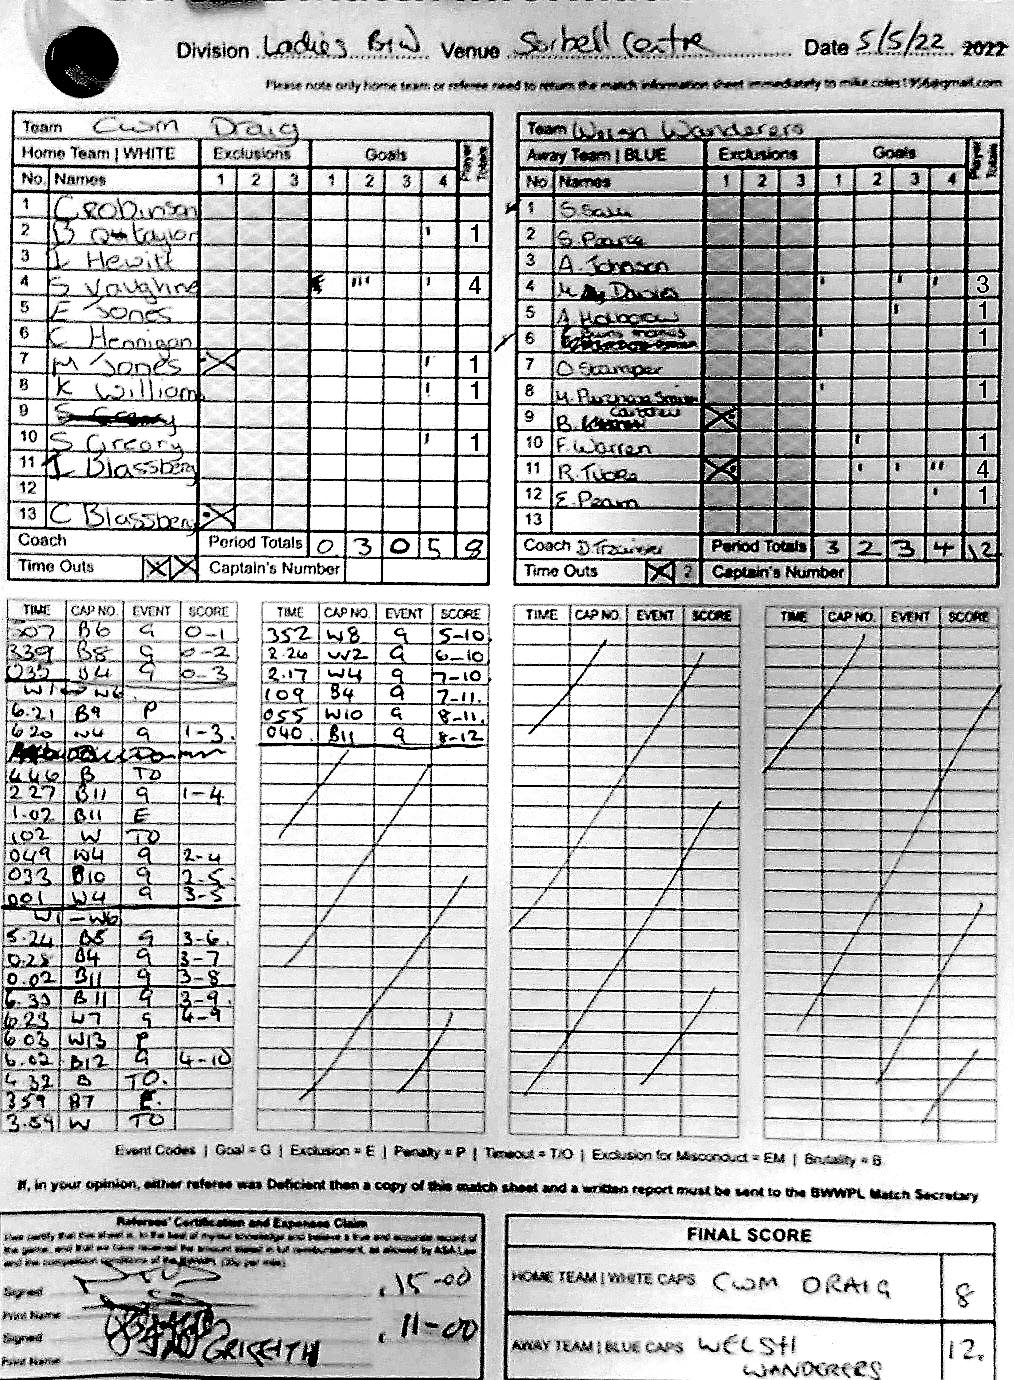 Division Ladies BIW Venue Sorbell Centre Date 5/5/22 2022
Please note only home team or referee need to return the match information sheet immediately to mike.coles1956@gmail.com
Team Cwm Draig
Home Team | WHITE Exclusions Goals Player Totals
No. Names 1 2 3 1 2 3 4
1 C Robinson
2 B taylor ' 1
3 I Hewitt
4 S Vaughne ''' ' 4
5 E Jones
6 C Hennigan
7 M Jones X ' 1
8 K William ' 1
9 S Greory
10 S Greory ' 1
11 I Blassberg
12
13 C Blassberg X
Coach Period Totals 0 3 0 5 8
Time Outs X X Captain's Number
Team Welsh Wanderers
Away Team | BLUE Exclusions Goals Player Totals
No Names 1 2 3 1 2 3 4
1 S. Sau
2 S. Pearce
3 A. Johnson
4 M Davies ' ' ' 3
5 A. ' 1
6 ' 1
7 O Stamper
8 M. Purchase Smith ' 1
9 B. X
10 F. Warren ' 1
11 R. Tubre X ' ' '' 4
12 E. Pearn ' 1
13
Coach D. Trainer Period Totals 3 2 3 4 12
Time Outs X 2 Captain's Number
TIME CAP NO. EVENT SCORE
507 B6 G 0-1
339 B8 G 0-2
035 B4 G 0-3
W1 W6
6.21 B9 P
620 W4 G 1-3.
446 B TO
227 B11 G 1-4
1.02 B11 E
102 W TO
049 W4 G 2-4
033 B10 G 2-5.
001 W4 G 3-5
W1 - W6
5.24 B5 G 3-6.
0.28 B4 G 3-7
0.02 B11 G 3-8
6.33 B11 G 3-9.
6.23 W7 G 4-9
6 03 W13 P
6.02 B12 G 4-10
4 32 B TO.
359 B7 E.
3.54 W TO
TIME CAP NO. EVENT SCORE
352 W8 G 5-10.
2.26 W2 G 6-10
2.17 W4 G 7-10.
109 B4 G 7-11.
055 W10 G 8-11.
040. B11 G 8-12
TIME CAP NO. EVENT SCORE
TIME CAP NO. EVENT SCORE
Event Codes | Goal = G | Exclusion = E | Penalty = P | Timeout = T/O | Exclusion for Misconduct = EM | Brutality = B
If, in your opinion, either referee was Deficient then a copy of this match sheet and a written report must be sent to the BWWPL Match Secretary
Referees' Certification and Expenses Claim
I/we certify that this sheet is, to the best of my/our knowledge and believe a true and accurate record of
the game, and that we have received the amount stated in full reimbursement, as allowed by ASA Law
and the competition conditions of the BWWPL (30p per mile)
Signed . 15-00
Print Name
Signed . 11-00
Print Name GRIFFITH
FINAL SCORE
HOME TEAM | WHITE CAPS CWM DRAIG 8
AWAY TEAM | BLUE CAPS WELSH WANDERERS 12.